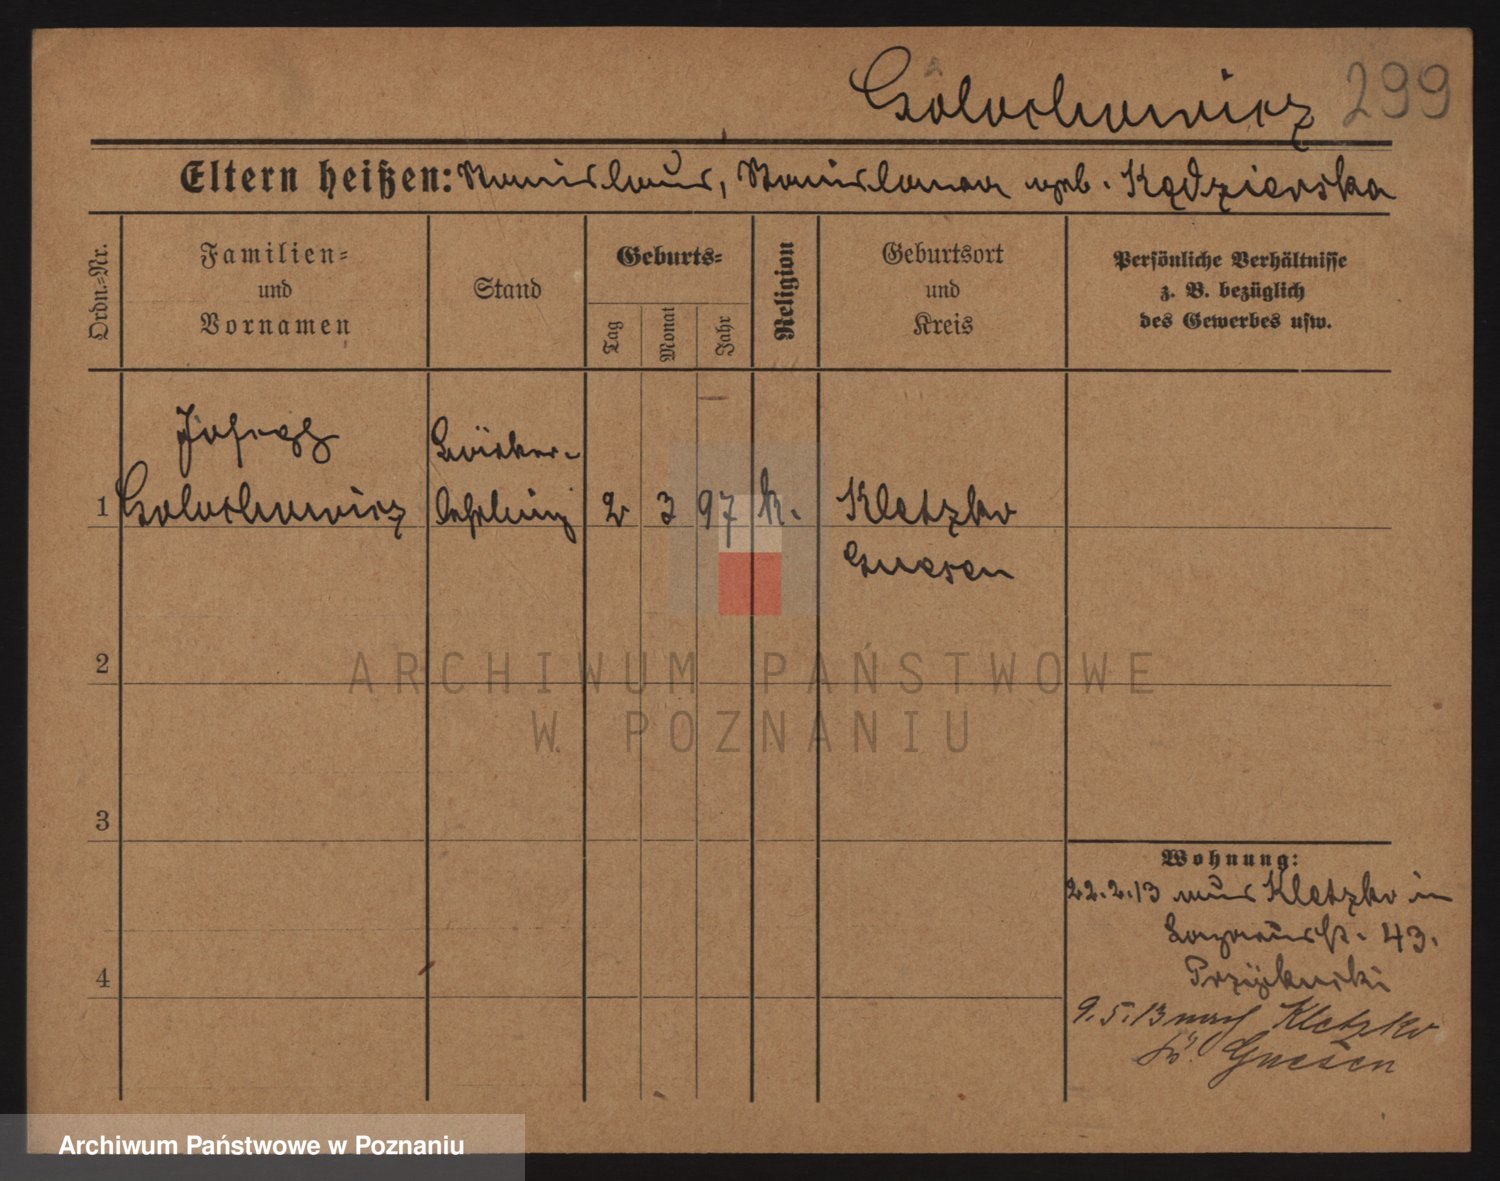 299
Golochowicz
Eltern heißen: Stanislaus, Stanislawa geb. Kędzierska
Ordn.-Nr.
Familien-
und
Vornamen
Stand
Geburts-
Tag
Monat
Jahr
Religion
Geburtsort
und
Kreis
Persönliche Verhältnisse
z. B. bezüglich
des Gewerbes usw.
Joseph
1 Golochowicz
lehrling 2 3 97 k. Kletzko
Gnesen
2
3
4
Wohnung:
22.2.13 aus Kletzko in
Lazarusst. 43.
9.5.13 nach Kletzko
Gnesen
ARCHIWUM PAŃSTWOWE
W POZNANIU
Archiwum Państwowe w Poznaniu